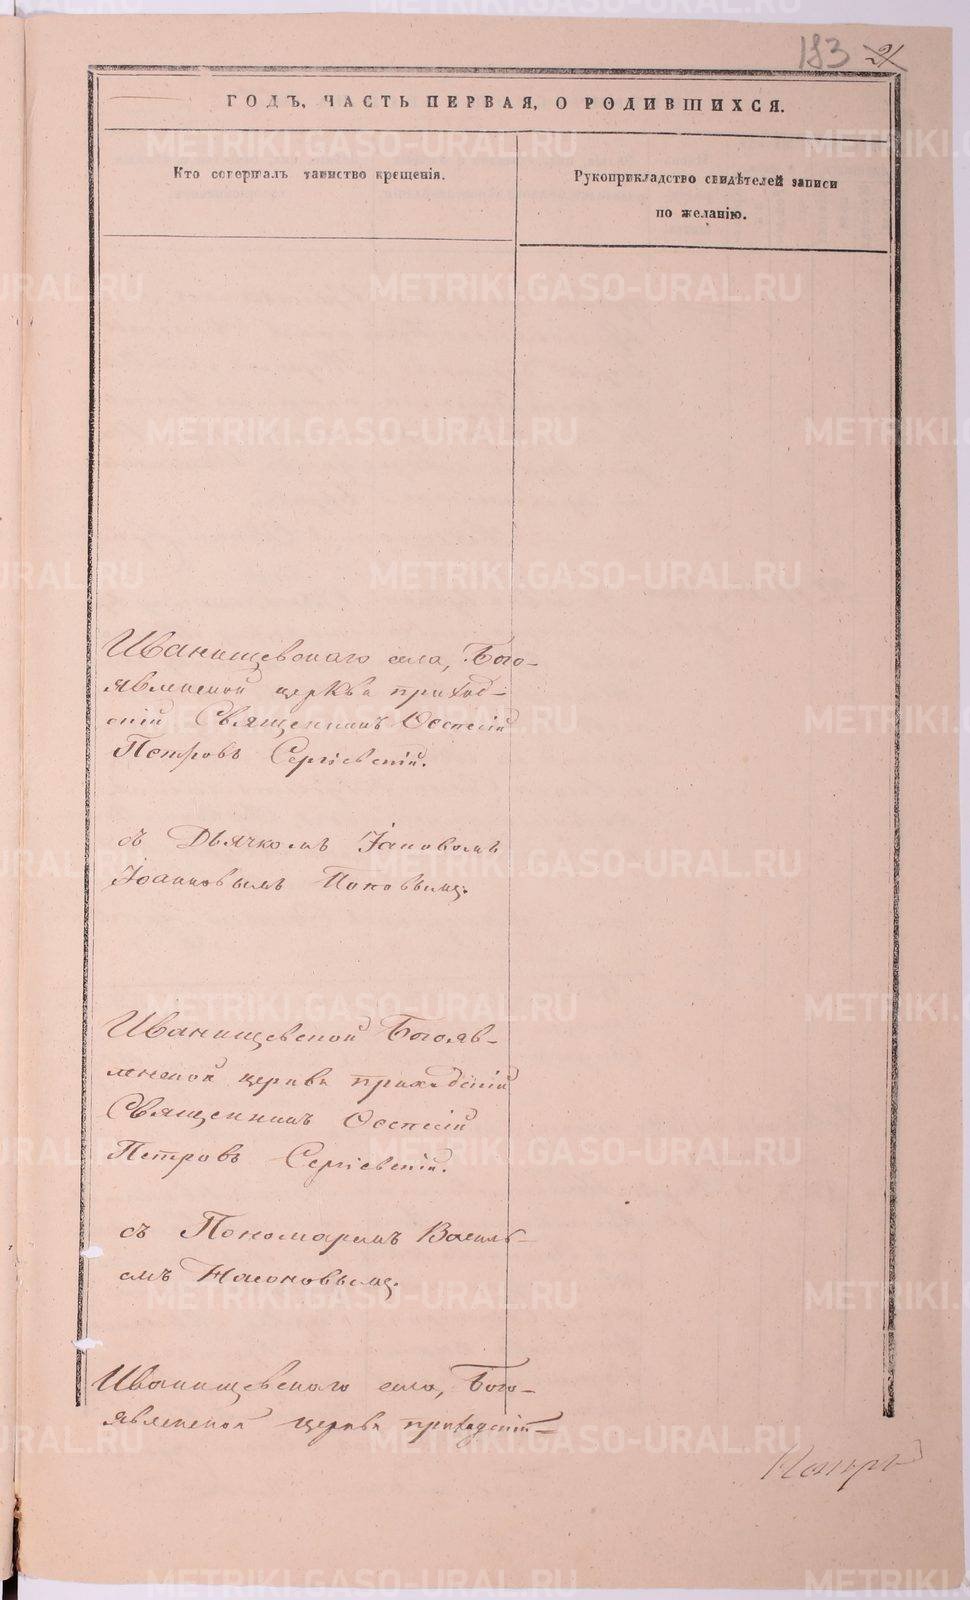 183 21
ГОДЪ, ЧАСТЬ ПЕРВАЯ, О РОДИВШИХСЯ.
Кто совершалъ таинство крещенія.
Рукоприкладство свидѣтелей записи
по желанію.
Иванищевскаго села, Бого-
явленской церкви приход-
скій Священникъ
Петровъ Сергіевскій.
съ Дьячкомъ Іаковомъ
Іоанновымъ Поповымъ.
Иванищевской Богояв-
ленской церкви приходскій
Священникъ
Петровъ Сергіевскій.
съ Пономаремъ Василь-
емъ
Иванищевскаго села, Бого-
явленской церкви приходскій
METRIKI.GASO-URAL.RU